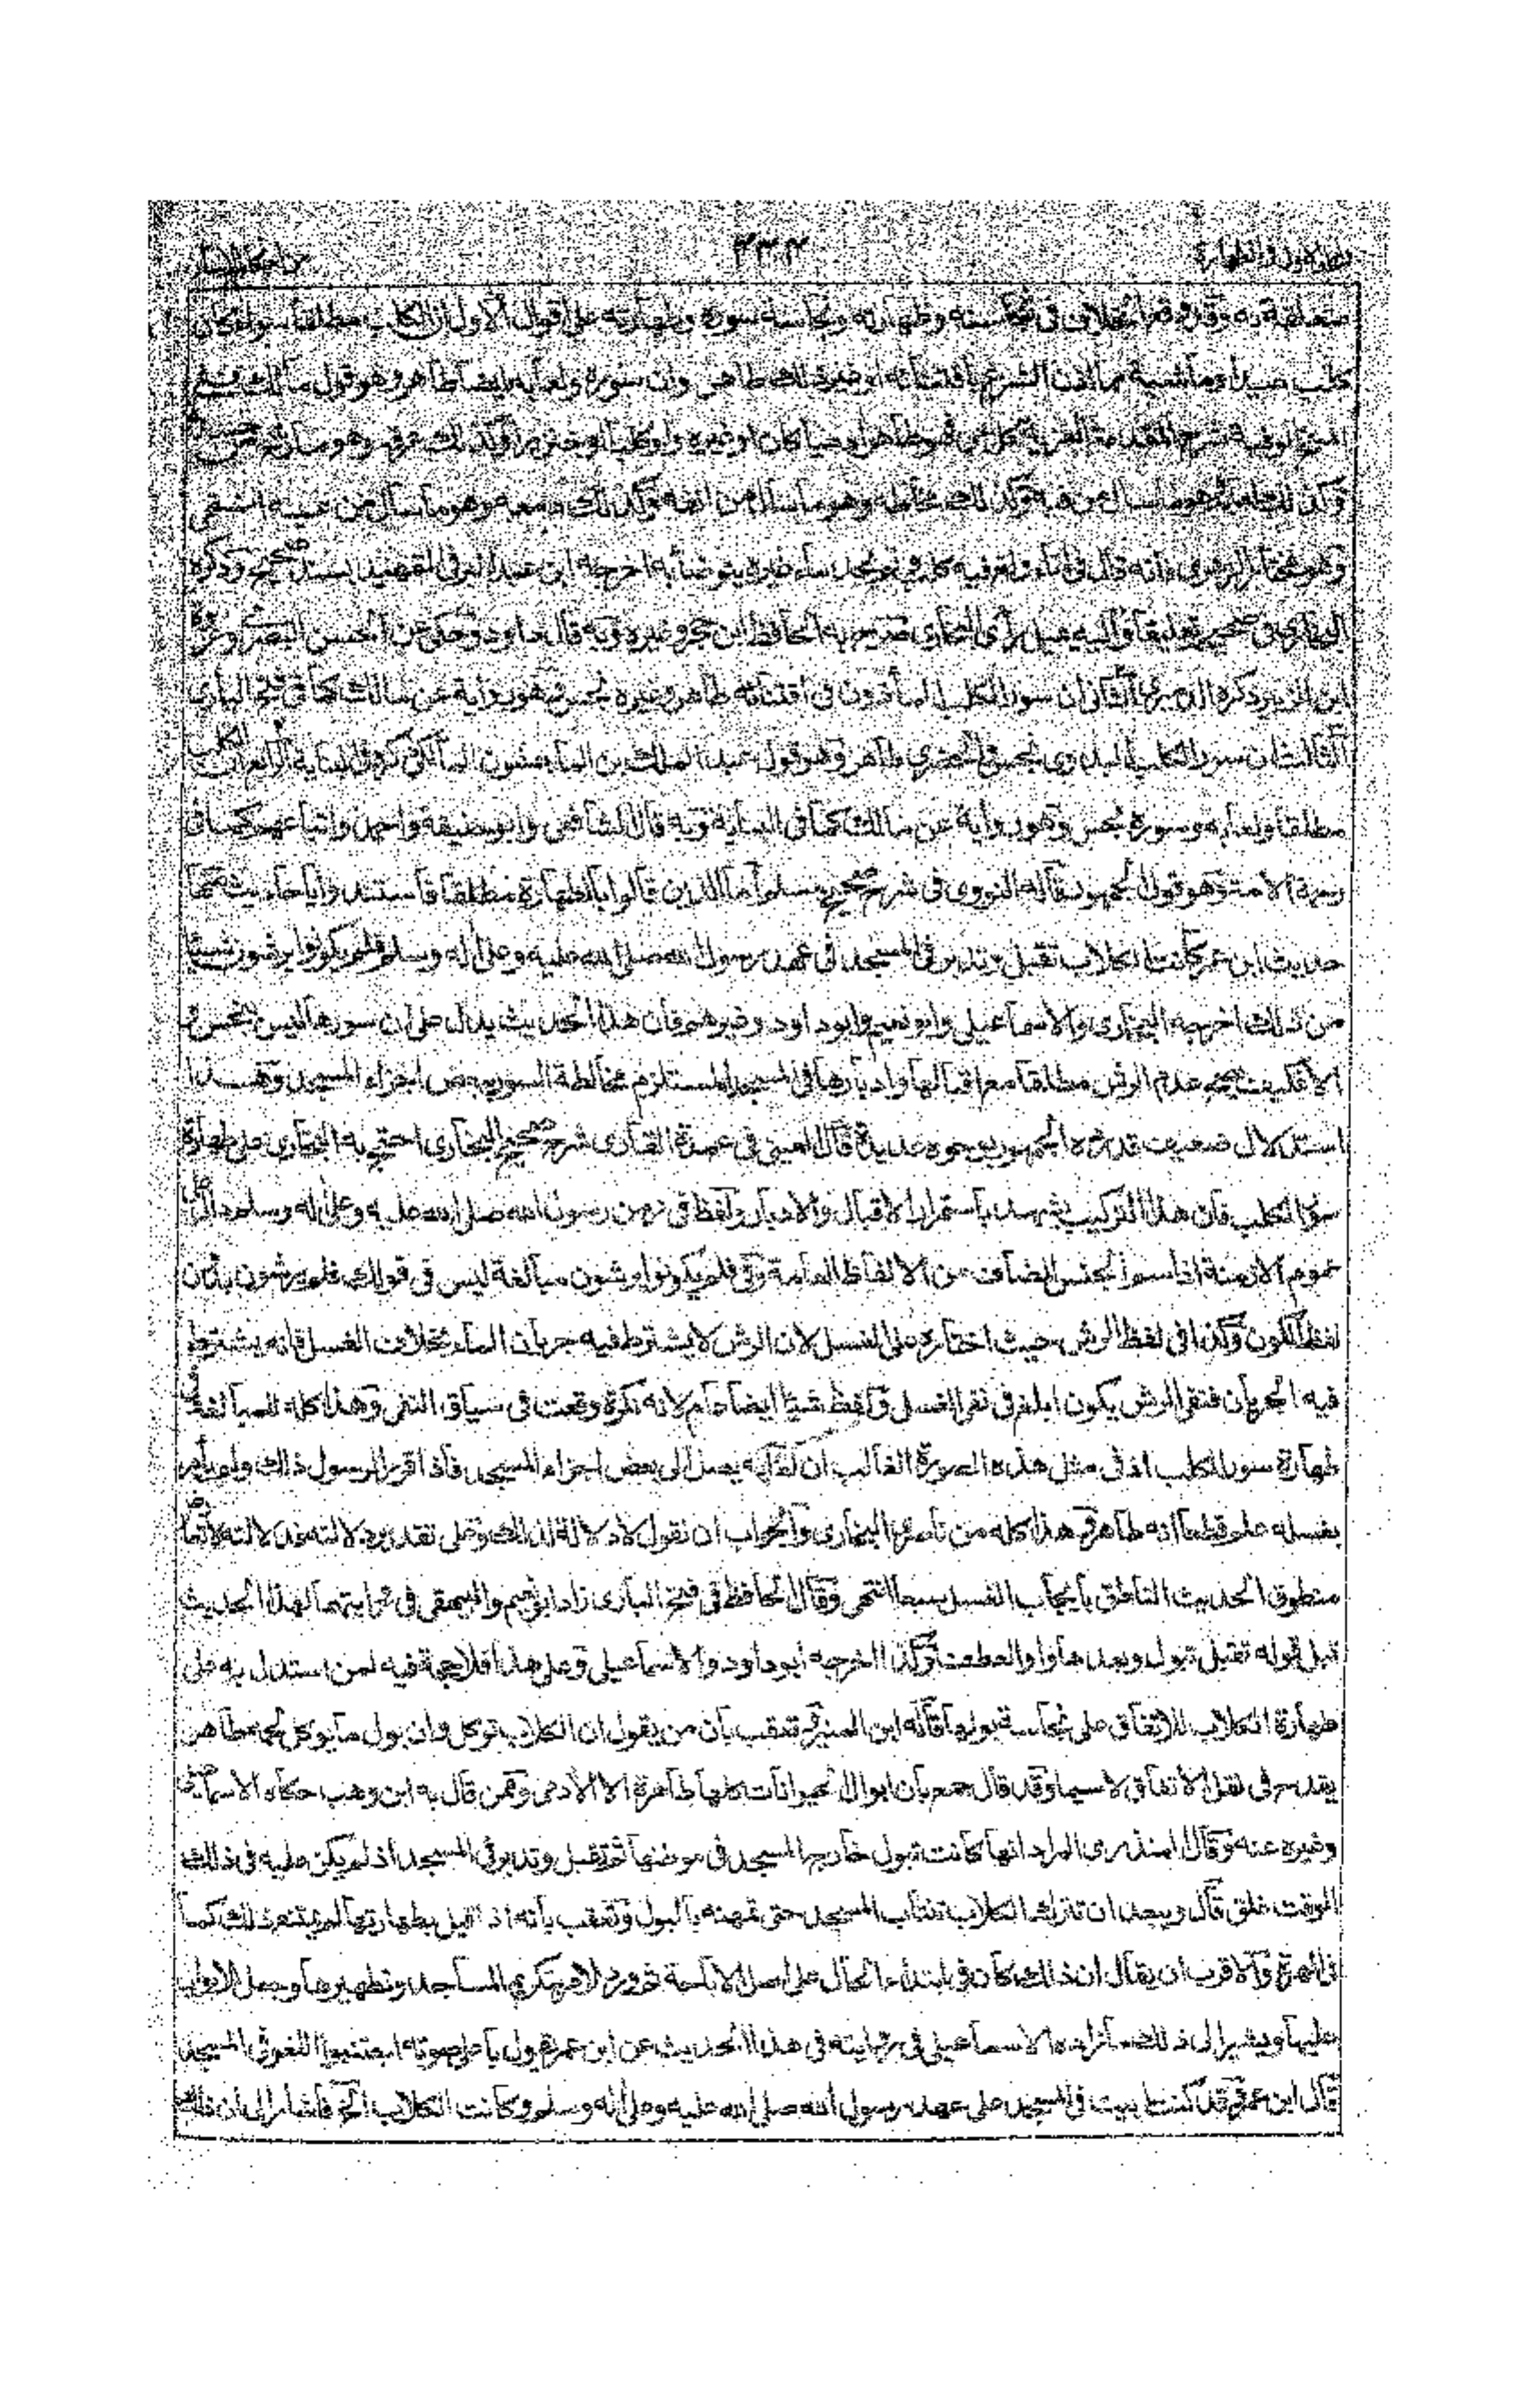 ٤٣٤
وقد وقع الاختلاف في نجاسته وطهارته ونجاسة سوره وطهارته على اقوال الاول ان الكلب مطلقا سواء كان
كلب صيد او ماشية مما اذن الشرع باقتنائه او غير ذلك طاهر وان سوره ولعابه ايضا طاهر وهو قول مالك
شرح المقدمة العزية كل حي فهو طاهر ادميا كان او غيره ولو كلبا او خنزيرا وكذلك عرقه وهو ما رشح من
وكذلك وهو ما سال من فيه وكذلك مخاطه وهو ما سال من انفه وكذلك دمعه وهو ما سال من عينيه انتهى
وهو مختار الزهري فانه قال في اناء ولغ فيه كلب فلم يجد ماء غيره يتوضأ به اخرجه ابن عبد البر في التمهيد بسند صحيح وذكره
البخاري في صحيحه تعليقا واليه يميل رأى البخاري صرح به الحافظ ابن حجر وغيره وبه قال داود وحكى عن الحسن البصري وعروة
ابن الزبير ذكره الدميري الثاني ان سور الكلب المأذون في اقتنائه طاهر وغيره نجس وهو رواية عن مالك كما في فتح الباري
الثالث ان سور الكلب البدوي نجس والحضري طاهر وهو قول عبد الملك بن الماجشون المالكي ذكره في البناية الرابع ان الكلب
مطلقا ولعابه وسوره نجس وهو رواية عن مالك كما في البناية وبه قال الشافعي وابو حنيفة واحمد واتباعهم كما في
رحمة الامة وهو قول الجمهور قاله النووي في شرح صحيح مسلم اما الذين قالوا بالطهارة مطلقا فاستندوا باحاديث منها
حديث ابن عمر كانت الكلاب تقبل وتدبر في المسجد في عهد رسول الله صلى الله عليه وعلى اله وسلم فلم يكونوا يرشون شيئا
من ذلك اخرجه البخاري والاسماعيلي وابو نعيم وابو داود وغيرهم فان هذا الحديث يدل على ان سورها ليس بنجس و
الا فكيف يصح عدم الرش مطلقا مع اقبالها وادبارها في المسجد المستلزم مخالطة السور ببعض اجزاء المسجد وهذا
استدلال ضعيف قد رده الجمهور بوجوه عديدة قال العيني في عمدة القاري شرح صحيح البخاري احتج به البخاري على طهارة
سور الكلب فان هذا التركيب يشهد باستمرار الاقبال والادبار ولفظ في زمن رسول الله صلى الله عليه وعلى اله وسلم دال على
عموم الازمنة اذ اسم الجنس المضاف من الالفاظ العامة وفي فلم يكونوا يرشون مبالغة ليس في قولك فلم يرشون بدون
لفظ الكون وكذا في لفظ الرش حيث اختاره على الغسل لان الرش لا يشترط فيه جريان الماء بخلاف الغسل فانه يشترط
فيه الجريان فنفي الرش يكون ابلغ في نفي الغسل ولفظ شيئا ايضا عام لانه نكرة وقعت في سياق النفي وهذا كله للمبالغة في
طهارة سور الكلب اذ في مثل هذه الصورة الغالب ان لعابه يصل الى بعض اجزاء المسجد فاذا قرر الرسول ذلك ولم يأمر
بغسله علم قطعا انه طاهر هذا كله من ناصري البخاري والجواب ان نقول لا دلالة لذلك وعلى تقدير دلالته فدلالته لا تعارض
منطوق الحديث الناطق بايجاب الغسل سبعا انتهى وقال الحافظ في فتح الباري زاد ابو نعيم والبيهقي في روايتهما لهذا الحديث
قبل قوله تقبل تبول وبعدها واو العطف وكذا اخرجه ابو داود والاسماعيلي وعلى هذا فلا حجة فيه لمن استدل به على
طهارة الكلاب للاتفاق على نجاسة بولها قاله ابن المنير وتعقب بان من يقول ان الكلاب توكل وان بول ما يوكل لحمه طاهر
يقدح في نقل الاتفاق لا سيما وقد قال جمع بان ابوال الحيوانات كلها طاهرة الا الادمي وممن قال به ابن وهب حكاه الاسماعيلي
وغيره عنه وقال المنذري المراد انها كانت تبول خارج المسجد في مواضعها ثم تقبل وتدبر في المسجد اذ لم يكن عليه في ذلك
الوقت غلق قال ويبعد ان تترك الكلاب تنتاب المسجد حتى تمتهنه بالبول وتعقب بانه اذا قيل بطهارتها لم يمتنع ذلك كما
في الهرة والاقرب ان يقال ان ذلك كان في ابتداء الحال على اصل الاباحة ثم ورد الامر بتكريم المساجد وتطهيرها وجعل الابواب
عليها ويشير الى ذلك ما زاده الاسماعيلي في روايته في هذا الحديث عن ابن عمر يقول باعلى صوته اجتنبوا اللغو في المسجد
قال ابن عمر وقد كنت ابيت في المسجد على عهد رسول الله صلى الله عليه وعلى اله وسلم وكانت الكلاب الخ فاشار الى ان ذلك